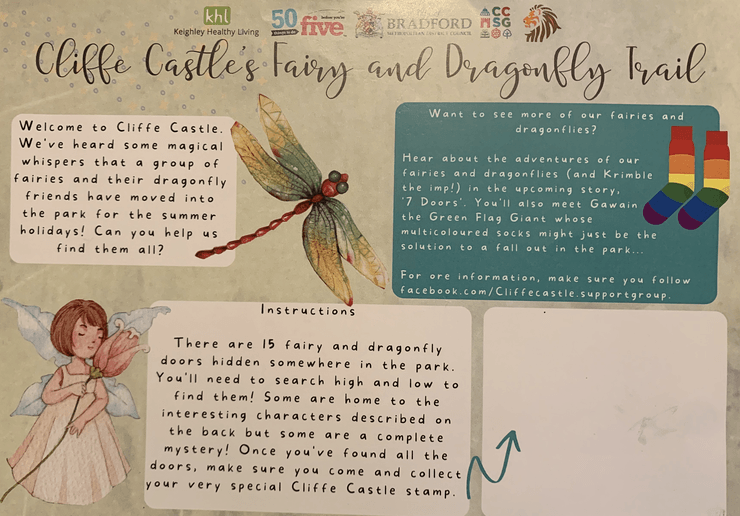 khl
Keighley Healthy Living
50
five
BRADFORD
METROPOLITAN DISTRICT COUNCIL
CC
SG
Cliffe Castle's Fairy and Dragonfly Trail
Welcome to Cliffe Castle.
We've heard some magical
whispers that a group of
fairies and their dragonfly
friends have moved into
the park for the summer
holidays! Can you help us
find them all?
Want to see more of our fairies and
dragonflies?
Hear about the adventures of our
fairies and dragonflies (and Krimble
the imp!) in the upcoming story,
'7 Doors'. You'll also meet Gawain
the Green Flag Giant whose
multicoloured socks might just be the
solution to a fall out in the park...
For ore information, make sure you follow
facebook.com/Cliffecastle.supportgroup.
Instructions
There are 15 fairy and dragonfly
doors hidden somewhere in the park.
You'll need to search high and low to
find them! Some are home to the
interesting characters described on
the back but some are a complete
mystery! Once you've found all the
doors, make sure you come and collect
your very special Cliffe Castle stamp.